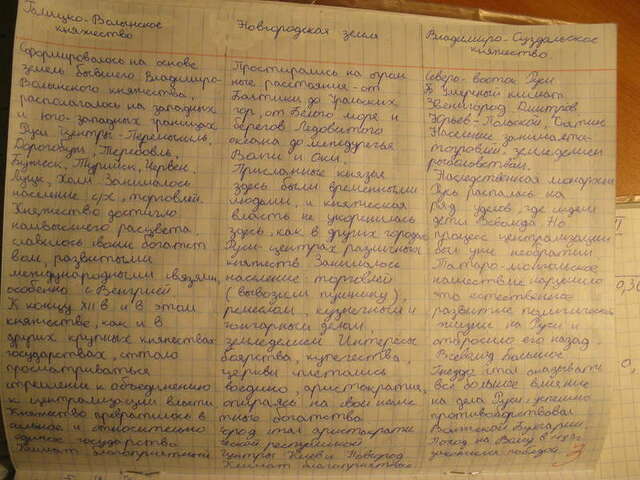 Галицко-Волынское
княжество
Сформировалось на основе
земель бывшего Владимиро-
Волынского княжества,
располагалось на западных
и юго-западных границах
Руси Центры - Перемышль,
Дорогобуж, Теребовль,
Бужеск, Турийск, Червен,
Луцк, Холм. Занималось
население с/х, торговлей.
Княжество достигло
наивысшего расцвета.
славилось своим богатст
вом, развитыми
международными связями,
особенно с Венгрией
К концу XII в и в этом
княжестве, как и в
других крупных княжествах
государствах, стало
просматриваться
стремление к объединению
к централизации власти
Княжество превратилось в
сильное и относительно
единое государство
Климат благоприятный
Новгородская земля
Простирались на огром
ные расстояния - от
Балтики до Уральских
гор, от Белого моря и
берегов Ледовитого
океана до междуречья
Волги и Оки.
Присланные князья
здесь были временными
людьми, и княжеская
власть не укоренилась
здесь, как в других городах
Руси - центрах различных
княжеств. Занималось
население: торговлей
(вывозили пушнину),
ремеслом, кузнечным и
гончарным делом,
земледелием Интересы
боярства, купечества,
церкви сплелись
воедино, аристократия,
опираясь на свои
богатства
город стал аристократи
ческой республикой
Центры Киев и Новгород
Климат благоприятный
Владимиро-Суздальское
княжество
Северо-восток Руси
В умерный климат.
Звенигород Дмитров
Юрьев-Польской,
Население занимается
торговлей, земледелием
рыболовством.
Наследственная монархия
Русь распалась на
ряд уделов, где сидели
дети Всеволода Но
процесс централизации
был уже необратим
Татаро-монгольское
нашествие нарушило
это естественное
развитие политической
жизни на Руси и
отбросило его назад.
Всеволод Большое
Гнездо стал оказывать
всё большое влияние
на дела Руси. успешно
противодействовал
Волжской Булгарии.
Поход на Волгу в
закончился победой.
3
0,3
0,